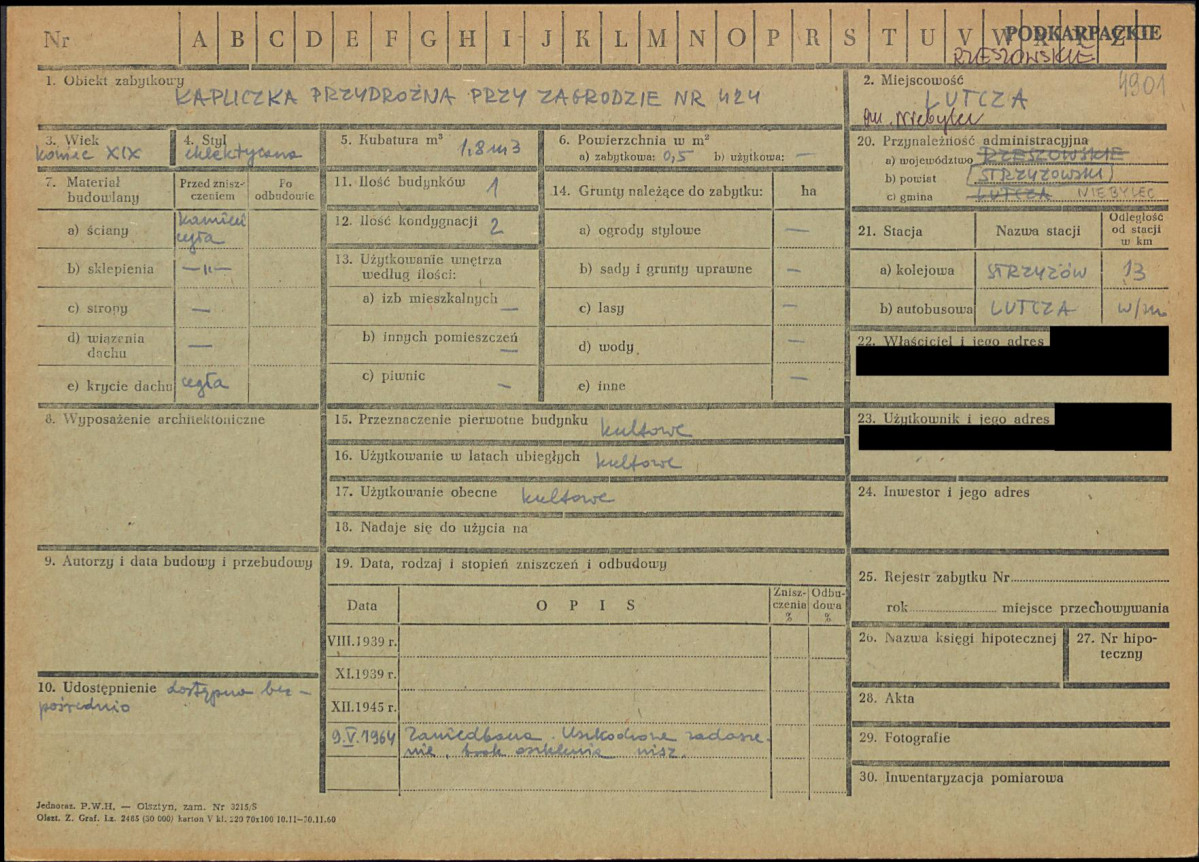 Nr A B C D E F G H I J K L M N O P R S T U V W X Y Z
PODKARPACKIE
RZESZOWSKIE
1. Obiekt zabytkowy
KAPLICZKA PRZYDROŻNA PRZY ZAGRODZIE NR 424
2. Miejscowość
4901
LUTCZA
gm. Niebylec
3. Wiek
koniec XIX
4. Styl
eklektyczna
5. Kubatura m³ 1,8 m3
6. Powierzchnia w m²
a) zabytkowa: 0,5 b) użytkowa: —
7. Materiał budowlany
Przed zniszczeniem
Po odbudowie
a) ściany kamień cegła
b) sklepienia —"—
c) stropy —
d) wiązenia dachu —
e) krycie dachu cegła
8. Wyposażenie architektoniczne
9. Autorzy i data budowy i przebudowy
10. Udostępnienie dostępna bez-
pośrednio
11. Ilość budynków 1
12. Ilość kondygnacji 2
13. Użytkowanie wnętrza
według ilości:
a) izb mieszkalnych —
b) innych pomieszczeń —
c) piwnic —
14. Grunty należące do zabytku: ha
a) ogrody stylowe —
b) sady i grunty uprawne —
c) lasy —
d) wody —
e) inne —
15. Przeznaczenie pierwotne budynku kultowe
16. Użytkowanie w latach ubiegłych kultowe
17. Użytkowanie obecne kultowe
18. Nadaje się do użycia na
19. Data, rodzaj i stopień zniszczeń i odbudowy
Data OPIS Zniszczenia % Odbudowa %
VIII.1939 r.
XI.1939 r.
XII.1945 r.
9.V.1964 Zaniedbana. Uszkodzone zadasze-
nie, brak oszklenia nisz.
20. Przynależność administracyjna
a) województwo RZESZOWSKIE
b) powiat (STRZYŻOWSKI)
c) gmina LUTCZA NIEBYLEC
21. Stacja Nazwa stacji Odległość od stacji w km
a) kolejowa STRZYŻÓW 13
b) autobusowa LUTCZA w/m
22. Właściciel i jego adres
23. Użytkownik i jego adres
24. Inwestor i jego adres
25. Rejestr zabytku Nr
rok miejsce przechowywania
26. Nazwa księgi hipotecznej
27. Nr hipoteczny
28. Akta
29. Fotografie
30. Inwentaryzacja pomiarowa
Jednoraz. P.W.H, — Olsztyn, zam. Nr 3215/S
Olszt. Z. Graf. Lz. 2465 (30 000) karton V kl. 220 70x100 10.11—30.11.60